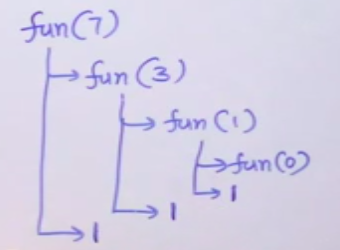 fun(7)
fun(3)
fun(1)
fun(0)
1
1
1